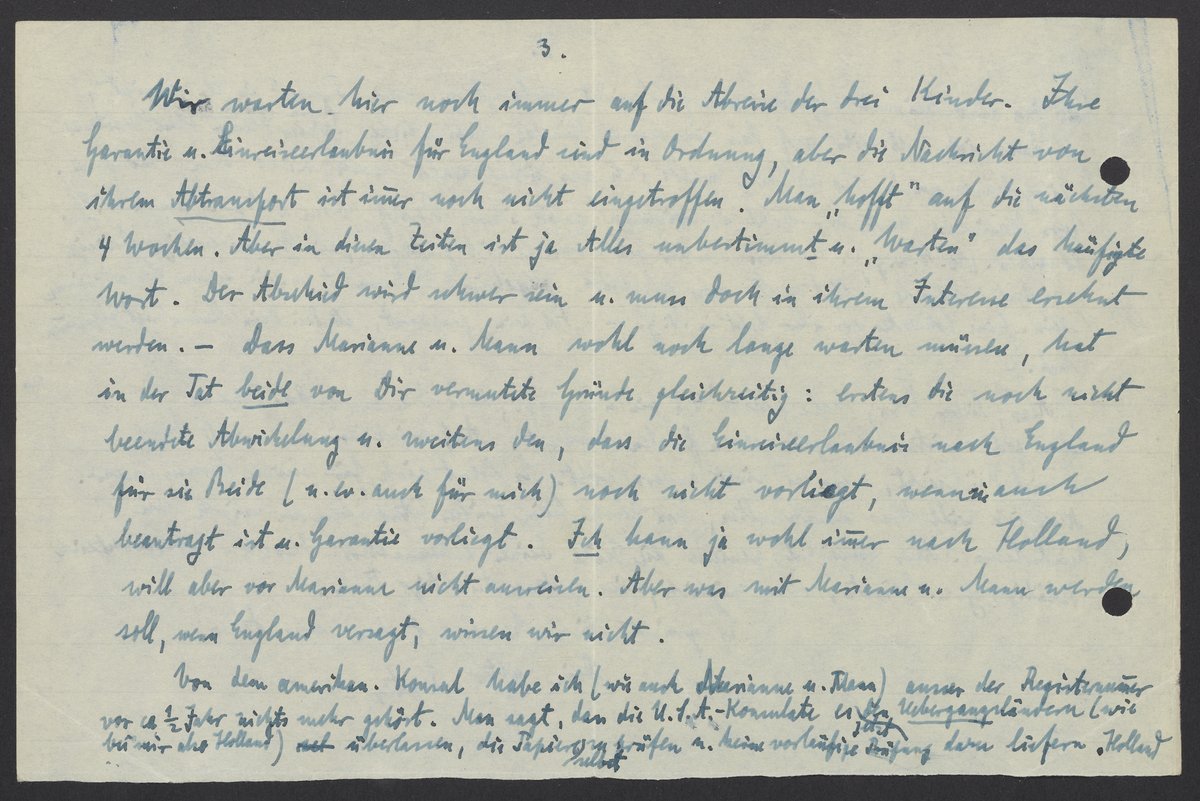 3.
Wir warten hier noch immer auf die Abreise der drei Kinder. Ihre
Garantie u. Einreiseerlaubnis für England sind in Ordnung, aber die Nachricht von
ihrem Abtransport ist im̅er noch nicht eingetroffen. Man „hofft" auf die nächsten
4 Wochen. Aber in diesen Zeiten ist ja Alles unbestimmt u. „Warten" das häufigste
Wort. Der Abschied wird schwer sein u. muss doch in ihrem Interesse ersehnt
werden. — Dass Marianne u. Mann wohl noch lange warten müssen, hat
in der Tat beide von Dir vermutete Gründe gleichzeitig: erstens die noch nicht
beendete Abwickelung u. zweitens den, dass die Einreiseerlaubnis nach England
für sie Beide (u. ev. auch für mich) noch nicht vorliegt, wenn sie auch
beantragt ist u. Garantie vorliegt. Ich kann ja wohl im̅er nach Holland,
will aber vor Marianne nicht ausreisen. Aber was mit Marianne u. Mann werden
soll, wenn England versagt, wissen wir nicht.
Von dem amerikan. Konsul habe ich (wie auch Marianne u. Mann) ausser der Registernum̅er
vor ca ½ Jahr nichts mehr gehört. Man sagt, dass die U.S.A.-Konsulate es den Uebergangsländern (wie
bei mir also Holland) überlassen, die Papiere selbst zu prüfen u. jetzt keine vorläufige Prüfung dazu liefern. Holland